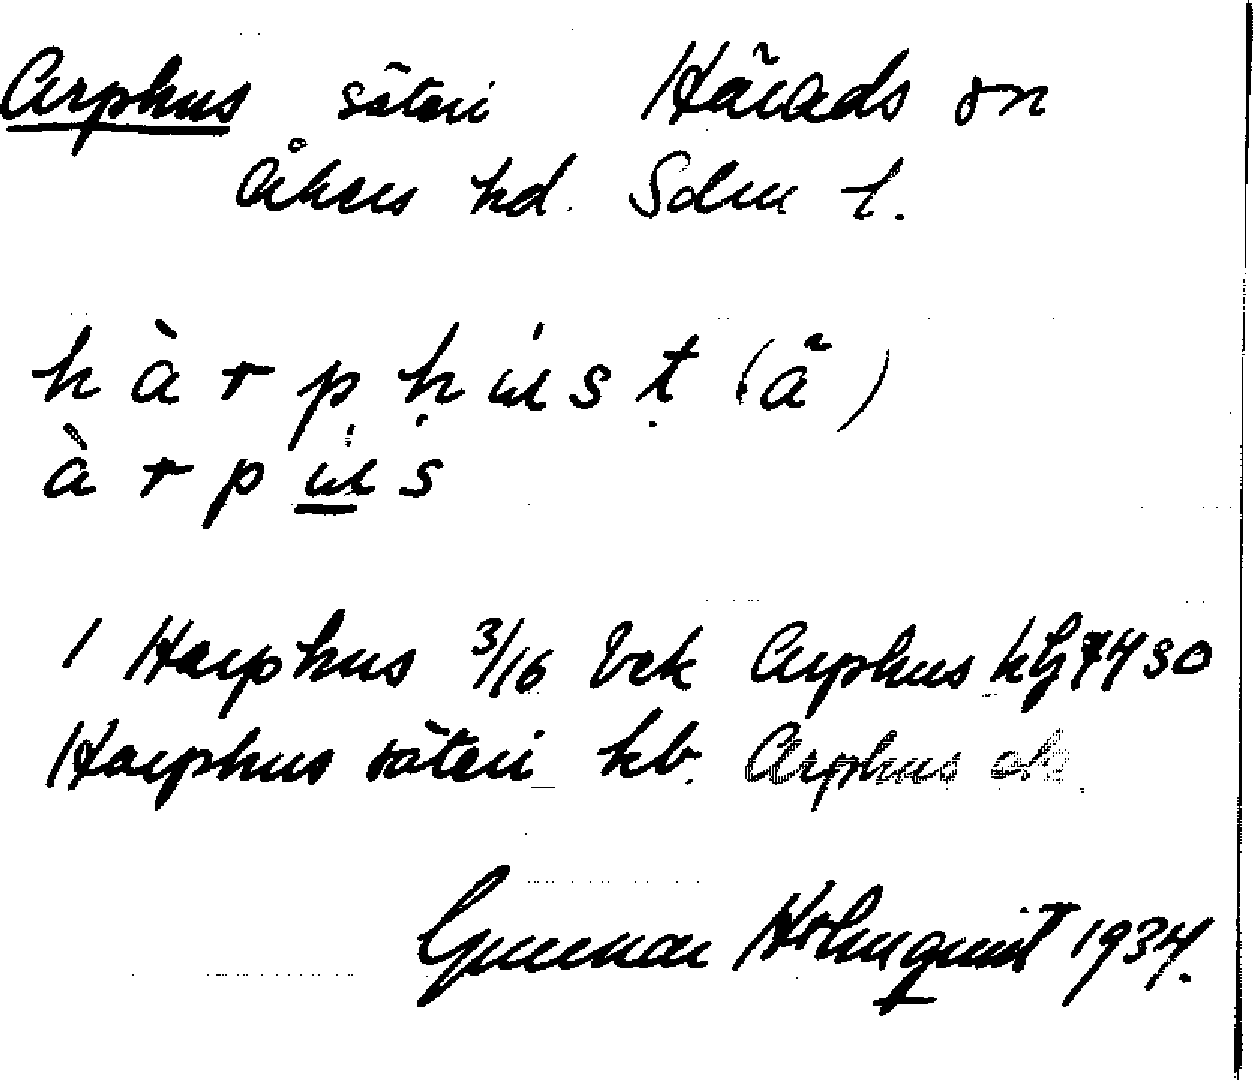 Arphus säteri Härads sn
Åkers hd. Sdm l.
h à r p h u s t (ã)
à r p u s
1 Harphus 3/16 Eek Arphus kG 7430
Harphus säteri kb. Arphus ek.
Gunnar Holmquist 1934.